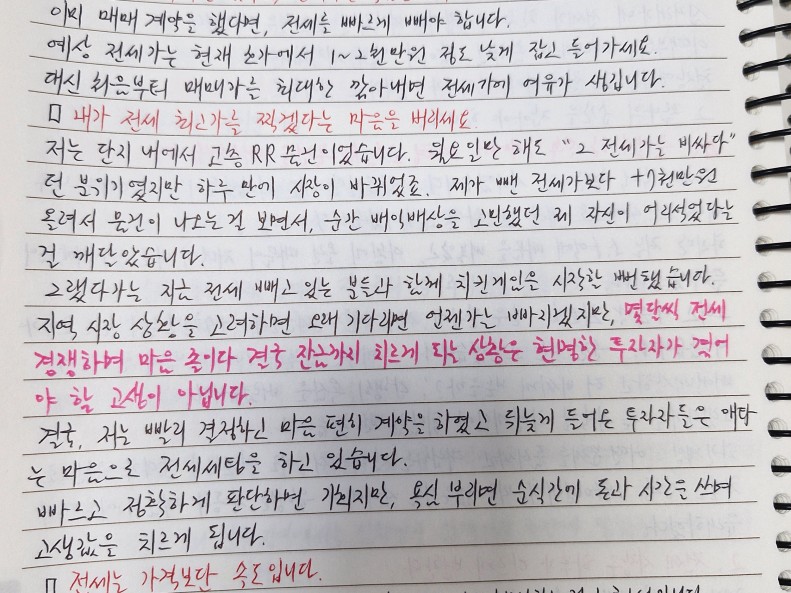 이미 매매 계약을 했다면, 전세를 빠르게 빼야 합니다.
예상 전세가는 현재 호가에서 1~2천만원 정도 낮게 잡고 들어가세요.
대신 처음부터 매매가를 최대한 깎아내면 전세가에 여유가 생깁니다.
□ 내가 전세 최고가를 찍겠다는 마음을 버리세요.
저는 단지 내에서 고층 RR 물건이었습니다. 월요일만 해도 "그 전세가는 비싸다"
던 분위기였지만 하루 만에 시장이 바뀌었죠. 제가 뺀 전세가보다 +7천만원
올려서 물건이 나오는 걸 보면서, 순간 배액배상을 고민했던 제 자신이 어리석었다는
걸 깨달았습니다.
그랬다가는 지금 전세 빼고 있는 분들과 함께 치킨게임을 시작할 뻔했습니다.
지역 시장 상황을 고려하면 오래 기다리면 언젠가는 빠지겠지만, 몇달씩 전세
경쟁하며 마음 졸이다 결국 잔금까지 치르게 되는 상황은 현명한 투자자가 겪어
야 할 고생이 아닙니다.
결국, 저는 빨리 결정하고 마음 편히 계약을 하였고 뒤늦게 들어온 투자자들은 애타
는 마음으로 전세세팅을 하고 있습니다.
빠르고 정확하게 판단하면 기회지만, 욕심 부리면 순식간에 돈과 시간을 쓰며
고생값을 치르게 됩니다.
□ 전세는 가격보단 속도입니다.